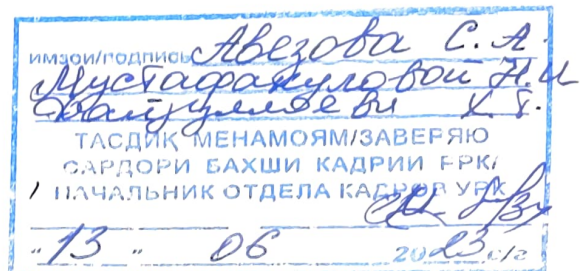 имзои/подпись Авезова С. А
Мустафакуловой Н.И
Файзуллоеви Х. Т.
ТАСДИҚ МЕНАМОЯМ/ЗАВЕРЯЮ
САРДОРИ БАХШИ КАДРИИ РРК/
НАЧАЛЬНИК ОТДЕЛА КАДРОВ УРК
"13" 06 2023 с/г